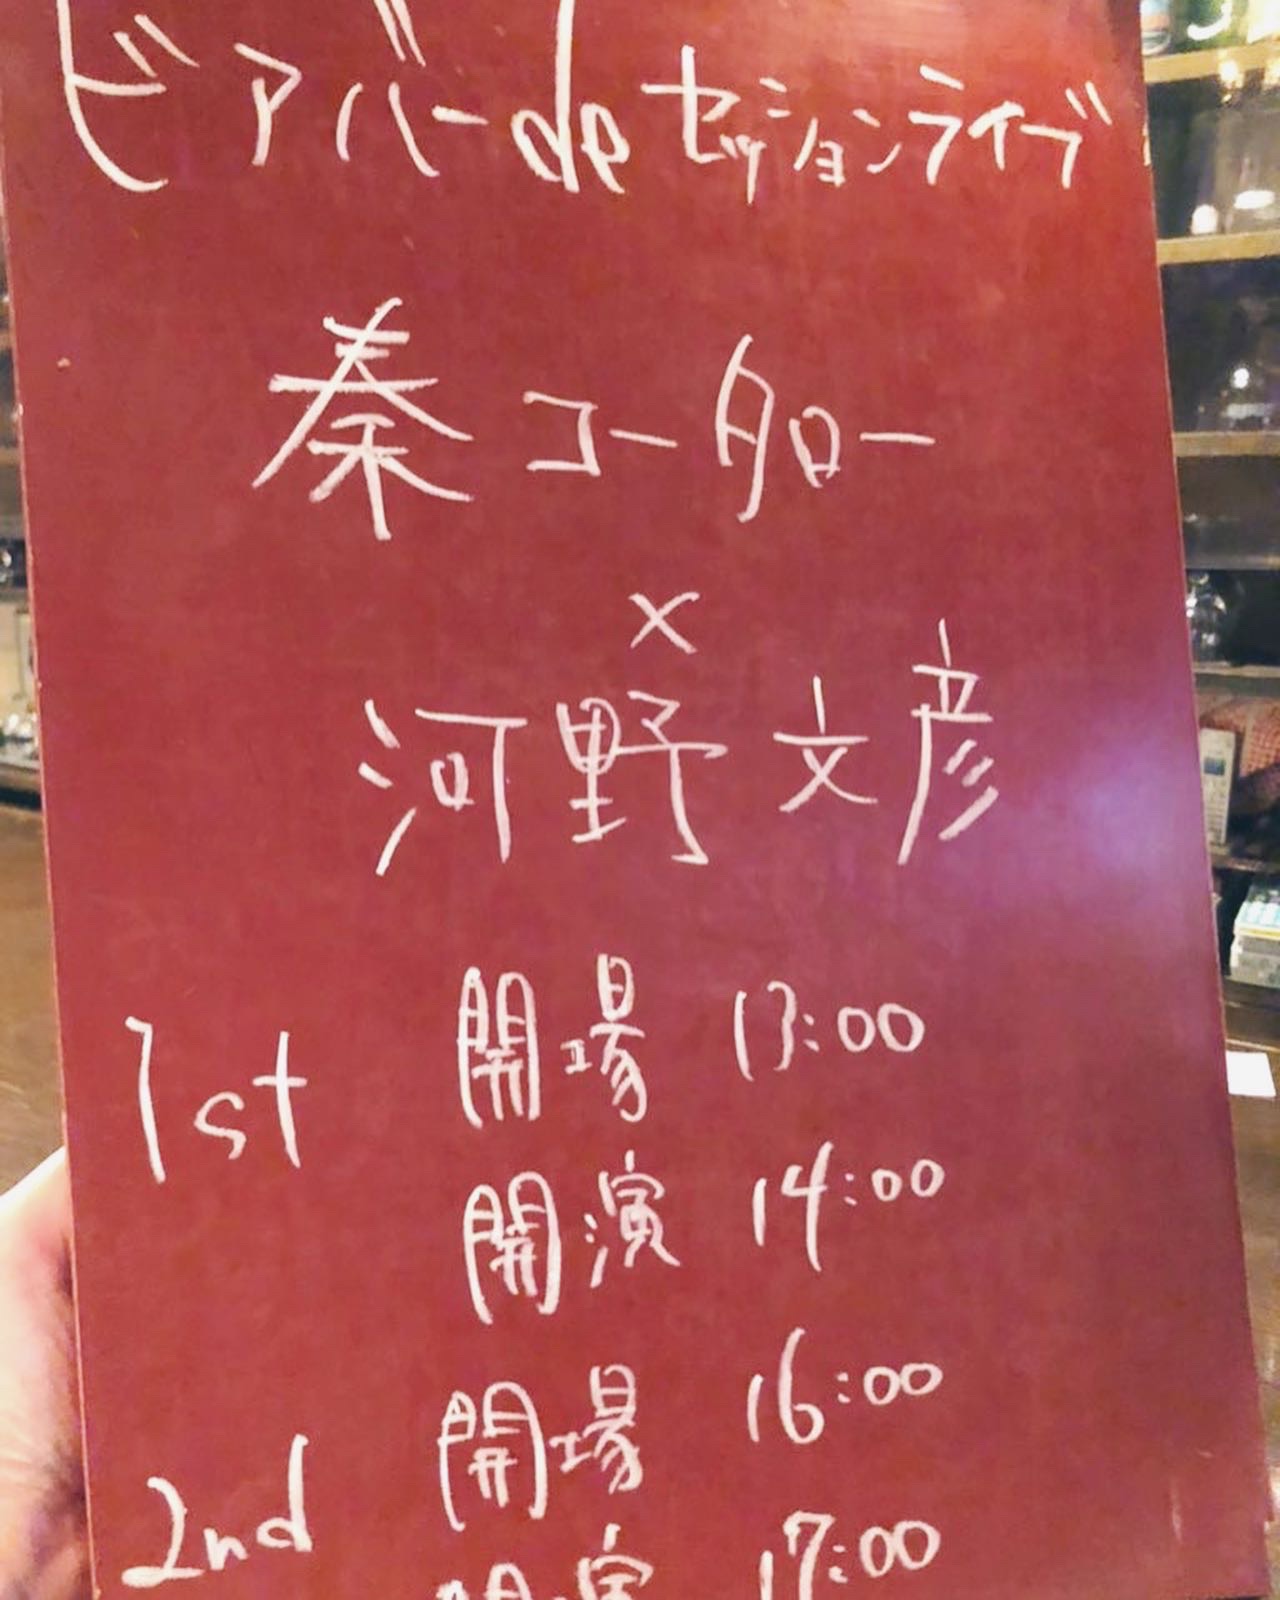 ビアバーdeセッションライブ
秦コータロー
×
河野文彦
1st 開場 13:00
開演 14:00
2nd 開場 16:00
開演 17:00